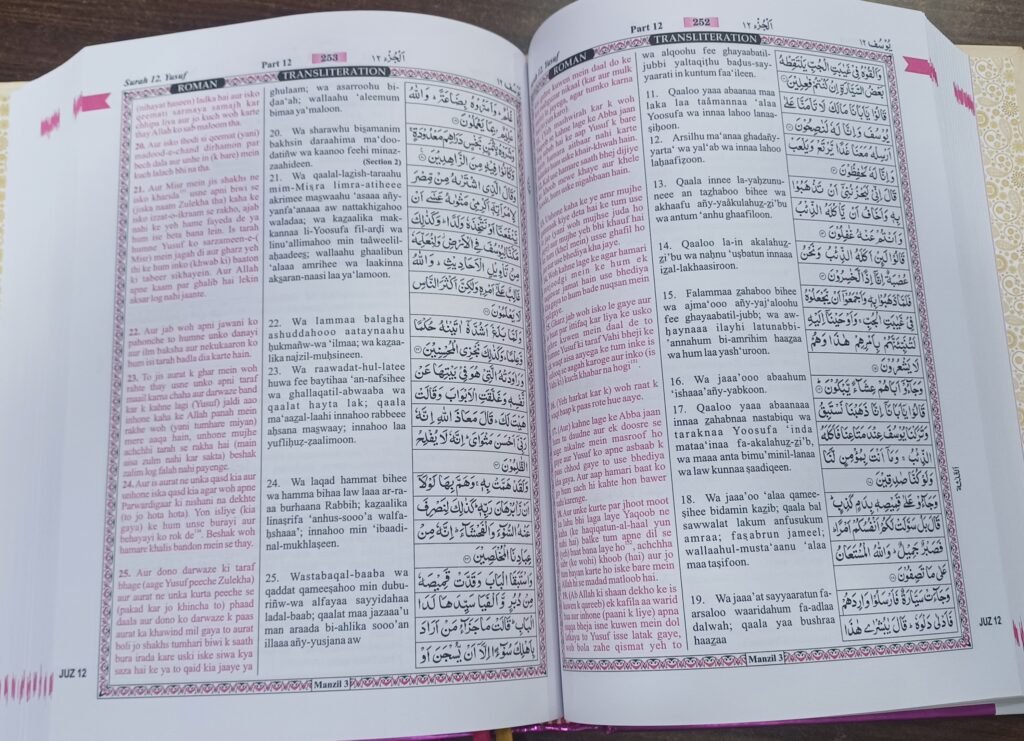 Surah 12. Yusuf
Part 12
253
اَلْجُزْء ١٢
ROMAN
TRANSLITERATION
(nihayat haseen) ladka hai aur isko
qeemati sarmaya samajh kar
chhupa liya aur jo kuch woh karte
thay Allah ko sab maloom tha.
20. Aur usko thodi si qeemat (yani)
madood-e-chand dirhamon par
bech dala aur unhe in (k bare) mein
kuch lalach bhi na tha.
21. Aur Misr mein jis shakhs ne
usne apni biwi se
(jiska naam Zulekha tha) kaha ke
isko izzat-o-ikraam se rakho, ajab
nahi ke yeh hume fayeda de ya
hum ise beta bana lein. Is tarah
humne Yusuf ko sarzameen-e-(
Misr) mein jagah di aur gharz yeh
thi ke hum inko (khwab ki) baaton
ki tabeer sikhayein. Aur Allah
apne kaam par ghalib hai lekin
aksar log nahi jaante.
22. Aur jab woh apni jawani ko
pahonche to humne unko danayi
aur ilm baksha aur nekukaaron ko
hum isi tarah badla dia karte hain.
23. To jis aurat k ghar mein woh
rahte thay usne unko apni taraf
maail karna chaha aur darwaze band
kar k kahne lagi (Yusuf) jaldi aao
inhone kaha ke Allah panah mein
rakhe woh (yani tumhare miyan)
mere aaqa hain, unhone mujhe
achchhi tarah se rakha hai (main
aisa zulm nahi kar sakta) beshak
zalim log falah nahi payenge.
24. Aur is aurat ne unka qasd kia aur
unhone iska qasd kia agar woh apne
Parwardigaar ki nishani na dekhte
(to jo hota hota). Yon isliye (kia
gaya) ke hum unse burayi aur
behayayi ko rok de. Beshak woh
hamare khalis bandon mein se thay.
25. Aur dono darwaze ki taraf
bhage (aage Yusuf peeche Zulekha)
aur aurat ne unka kurta peeche se
(pakad kar jo khincha to) phaad
daala aur dono ko darwaze k paas
aurat ka khawind mil gaya to aurat
boli jo shakhs tumhari biwi k saath
bura irada kare uski iske siwa kya
saza hai ke ya to qaid kia jaaye ya
ghulaam; wa asarroohu bi-
ḍaa'ah; wallaahu 'aleemum
bimaa ya'maloon.
20. Wa sharawhu biṣamanim
bakhsin daraahima ma'doo-
datiñw wa kaanoo feehi minaz-
zaahideen.
(Section 2)
21. Wa qaalal-lazish-taraahu
mim-Miṣra limra-atiheee
akrimee maṣwaahu 'asaaa añy-
yanfa'anaaa aw nattakhiẓahoo
waladaa; wa kazaalika mak-
kannaa li-Yoosufa fil-arḍi wa
linu'allimahoo min taaweelil-
aḥaadees; wallaahu ghaalibun
'alaaa amrihee wa laakinna
akṣaran-naasi laa ya'lamoon.
22. Wa lammaa balagha
ashuddahooo aataynaahu
ḥukmañw-wa 'ilmaa; wa kazaa-
lika najzil-muḥsineen.
23. Wa raawadat-hul-latee
huwa fee baytihaa 'an-nafsihee
wa ghallaqatil-abwaaba wa
qaalat hayta lak; qaala
ma'aazal-laahi innahoo rabbeee
aḥsana maṣwaay; innahoo laa
yufliḥuẓ-zaalimoon.
24. Wa laqad hammat bihee
wa hamma bihaa law laaa ar-ra-
aa burhaana Rabbih; kazaalika
linaṣrifa 'anhus-sooo'a walfa-
ḥshaaa'; innahoo min 'ibaadi-
nal-mukhlaṣeen.
25. Wastabaqal-baaba wa
qaddat qameeṣahoo min dubu-
riñw-wa alfayaa sayyidahaa
ladal-baab; qaalat maa jazaaa'u
man araada bi-ahlika sooo'an
illaaa añy-yusjana aw
غُلٰمٌ ؕ وَاَسَرُّوْهُ بِضَاعَةً ؕ وَاللّٰهُ
عَلِيْمٌۢ بِمَا يَعْمَلُوْنَ ۝
وَشَرَوْهُ بِثَمَنٍۭ بَخْسٍ دَرَاهِمَ مَعْدُوْدَةٍ ۚ
وَكَانُوْا فِيْهِ مِنَ الزَّاهِدِيْنَ ۝
وَقَالَ الَّذِى اشْتَرٰىهُ مِنْ مِّصْرَ
لِامْرَاَتِهٖۤ اَكْرِمِىْ مَثْوٰىهُ عَسٰٓى اَنْ
يَّنْفَعَنَاۤ اَوْ نَتَّخِذَهٗ وَلَدًا ؕ وَكَذٰلِكَ
مَكَّنَّا لِيُوْسُفَ فِى الْاَرْضِ وَلِنُعَلِّمَهٗ
مِنْ تَاْوِيْلِ الْاَحَادِيْثِ ؕ وَاللّٰهُ
غَالِبٌ عَلٰٓى اَمْرِهٖ وَلٰكِنَّ اَكْثَرَ النَّاسِ
لَا يَعْلَمُوْنَ ۝
وَلَمَّا بَلَغَ اَشُدَّهٗۤ اٰتَيْنٰهُ حُكْمًا
وَّعِلْمًا ؕ وَكَذٰلِكَ نَجْزِى الْمُحْسِنِيْنَ ۝
وَرَاوَدَتْهُ الَّتِىْ هُوَ فِىْ بَيْتِهَا عَنْ
نَّفْسِهٖ وَغَلَّقَتِ الْاَبْوَابَ وَقَالَتْ
هَيْتَ لَكَ ؕ قَالَ مَعَاذَ اللّٰهِ اِنَّهٗ
رَبِّىْۤ اَحْسَنَ مَثْوَاىَ ؕ اِنَّهٗ لَا يُفْلِحُ
الظّٰلِمُوْنَ ۝
وَلَقَدْ هَمَّتْ بِهٖ ۚ وَهَمَّ بِهَا لَوْلَاۤ
اَنْ رَّاٰ بُرْهَانَ رَبِّهٖ ؕ كَذٰلِكَ لِنَصْرِفَ
عَنْهُ السُّوْٓءَ وَالْفَحْشَآءَ ؕ اِنَّهٗ مِنْ
عِبَادِنَا الْمُخْلَصِيْنَ ۝
وَاسْتَبَقَا الْبَابَ وَقَدَّتْ قَمِيْصَهٗ
مِنْ دُبُرٍ وَّاَلْفَيَا سَيِّدَهَا لَدَا
الْبَابِ ؕ قَالَتْ مَا جَزَآءُ مَنْ اَرَادَ
بِاَهْلِكَ سُوْٓءًا اِلَّاۤ اَنْ يُّسْجَنَ اَوْ
Manzil 3
JUZ 12
Part 12
252
اَلْجُزْء ١٢
يُوْسُف ١٢
ROMAN
TRANSLITERATION
kuwen mein daal do ke
nikaal (kar aur mulk
jayega. agar tumko karna
mashwirah kar k woh
kahne lage ke Abba jaan
ke aap Yusuf k bare
aitbaar nahi karte
uske khair-khwah hain
hamare saath bhej dijiye
mewe khaye aur khele
hum uske nigahbaan hain.
kaha ke ye amr mujhe
kiye deta hai ke tum use
(yani woh mujhse juda ho
aur mujhe yeh bhi khauf hai
(khel mein) usse ghafil ho
use bhediya kha jaye.
Woh kahne lage ke agar hamari
mein ke hum ek
jamat hain use bhediya
gaya to hum bade nuqsan mein
Gharz jab woh isko le gaye aur
par ittefaq kar liya ke usko
kuwen mein daal de to
humne Yusuf ki taraf Vahi bheji ke
waqt aisa aayega ke tum inke is
se aagah karoge aur inko (is
ki) kuch khabar na hogi
16. (Yeh harkat kar k) woh raat k
baap k paas rote hue aaye.
17. (Aur) kahne lage ke Abba jaan
hum to daudne aur ek doosre se
nikalne mein masroof ho
gaye aur Yusuf ko apne asbaab k
paas chhod gaye to use bhediya
kha gaya. Aur aap hamari baat ko
go hum sach hi kahte hon bawer
nahi karenge.
18. Aur unke kurte par jhoot moot
ka lahu bhi laga laye Yaqoob ne
kaha (ke haqiqatun-al-haal yun
nahi) balke tum apne dil se
(yeh) baat bana laye ho, achchha
sabr (ke wohi) khoob (hai) aur jo
tum bayan karte ho iske bare mein
Allah hi se madad matloob hai.
19. (Ab Allah ki shaan dekho ke is
kuwen k qareeb) ek kafila aa warid
hua aur inhone (paani k liye) apna
saqqa bheja isne kuwen mein dol
latkaya to Yusuf isse latak gaye,
woh bola zahe qismat yeh to
wa alqoohu fee ghayaabatil-
jubbi yaltaqithu baḍus-say-
yaarati in kuntum faa'ileen.
11. Qaaloo yaaa abaanaa maa
laka laa taâmannaa 'alaa
Yoosufa wa innaa lahoo lanaa-
ṣiḥoon.
12. Arsilhu ma'anaa ghadañy-
yarta' wa yal'ab wa innaa lahoo
laḥaafizoon.
13. Qaala innee la-yaḥzunu-
neee an tazhaboo bihee wa
akhaafu añy-yaâkulahuz-zi'bu
wa antum 'anhu ghaafiloon.
14. Qaaloo la-in akalahuz-
zi'bu wa naḥnu 'uṣbatun innaaa
izal-lakhaasiroon.
15. Falammaa zahaboo bihee
wa ajma'ooo añy-yaj'aloohu
fee ghayaabatil-jubb; wa aw-
ḥaynaaa ilayhi latunabbi-
'annahum bi-amrihim haazaa
wa hum laa yash'uroon.
16. Wa jaaa'ooo abaahum
'ishaaa'añy-yabkoon.
17. Qaaloo yaaa abaanaaa
innaa zahabnaa nastabiqu wa
taraknaa Yoosufa 'inda
mataa'inaa fa-akalahuz-zi'b,
wa maaa anta bimu'minil-lanaa
wa law kunnaa ṣaadiqeen.
18. Wa jaaa'oo 'alaa qamee-
ṣihee bidamin kazib; qaala bal
sawwalat lakum anfusukum
amraa; faṣabrun jameel;
wallaahul-musta'aanu 'alaa
maa taṣifoon.
19. Wa jaaa'at sayyaaratun fa-
arsaloo waaridahum fa-adlaa
dalwah; qaala yaa bushraa
haazaa
وَاَلْقُوْهُ فِىْ غَيٰبَتِ الْجُبِّ يَلْتَقِطْهُ
بَعْضُ السَّيَّارَةِ اِنْ كُنْتُمْ فٰعِلِيْنَ ۝
قَالُوْا يٰۤاَبَانَا مَا لَكَ لَا تَاْمَنَّا عَلٰى
يُوْسُفَ وَاِنَّا لَهٗ لَنٰصِحُوْنَ ۝
اَرْسِلْهُ مَعَنَا غَدًا يَّرْتَعْ وَيَلْعَبْ
وَاِنَّا لَهٗ لَحٰفِظُوْنَ ۝
قَالَ اِنِّىْ لَيَحْزُنُنِىْۤ اَنْ تَذْهَبُوْا
بِهٖ وَاَخَافُ اَنْ يَّاْكُلَهُ الذِّئْبُ
وَاَنْتُمْ عَنْهُ غٰفِلُوْنَ ۝
قَالُوْا لَئِنْ اَكَلَهُ الذِّئْبُ وَنَحْنُ
عُصْبَةٌ اِنَّاۤ اِذًا لَّخٰسِرُوْنَ ۝
فَلَمَّا ذَهَبُوْا بِهٖ وَاَجْمَعُوْۤا اَنْ يَّجْعَلُوْهُ
فِىْ غَيٰبَتِ الْجُبِّ ۚ وَاَوْحَيْنَاۤ اِلَيْهِ
لَتُنَبِّئَنَّهُمْ بِاَمْرِهِمْ هٰذَا وَهُمْ
لَا يَشْعُرُوْنَ ۝
وَجَآءُوْۤ اَبَاهُمْ عِشَآءً يَّبْكُوْنَ ۝
قَالُوْا يٰۤاَبَانَاۤ اِنَّا ذَهَبْنَا نَسْتَبِقُ
وَتَرَكْنَا يُوْسُفَ عِنْدَ مَتَاعِنَا فَاَكَلَهُ
الذِّئْبُ ۚ وَمَاۤ اَنْتَ بِمُؤْمِنٍ لَّنَا
وَلَوْ كُنَّا صٰدِقِيْنَ ۝
وَجَآءُوْ عَلٰى قَمِيْصِهٖ بِدَمٍ كَذِبٍ ؕ
قَالَ بَلْ سَوَّلَتْ لَكُمْ اَنْفُسُكُمْ اَمْرًا ؕ
فَصَبْرٌ جَمِيْلٌ ؕ وَاللّٰهُ الْمُسْتَعَانُ
عَلٰى مَا تَصِفُوْنَ ۝
وَجَآءَتْ سَيَّارَةٌ فَاَرْسَلُوْا وَارِدَهُمْ
فَاَدْلٰى دَلْوَهٗ ؕ قَالَ يٰبُشْرٰى هٰذَا
Manzil 3
JUZ 12